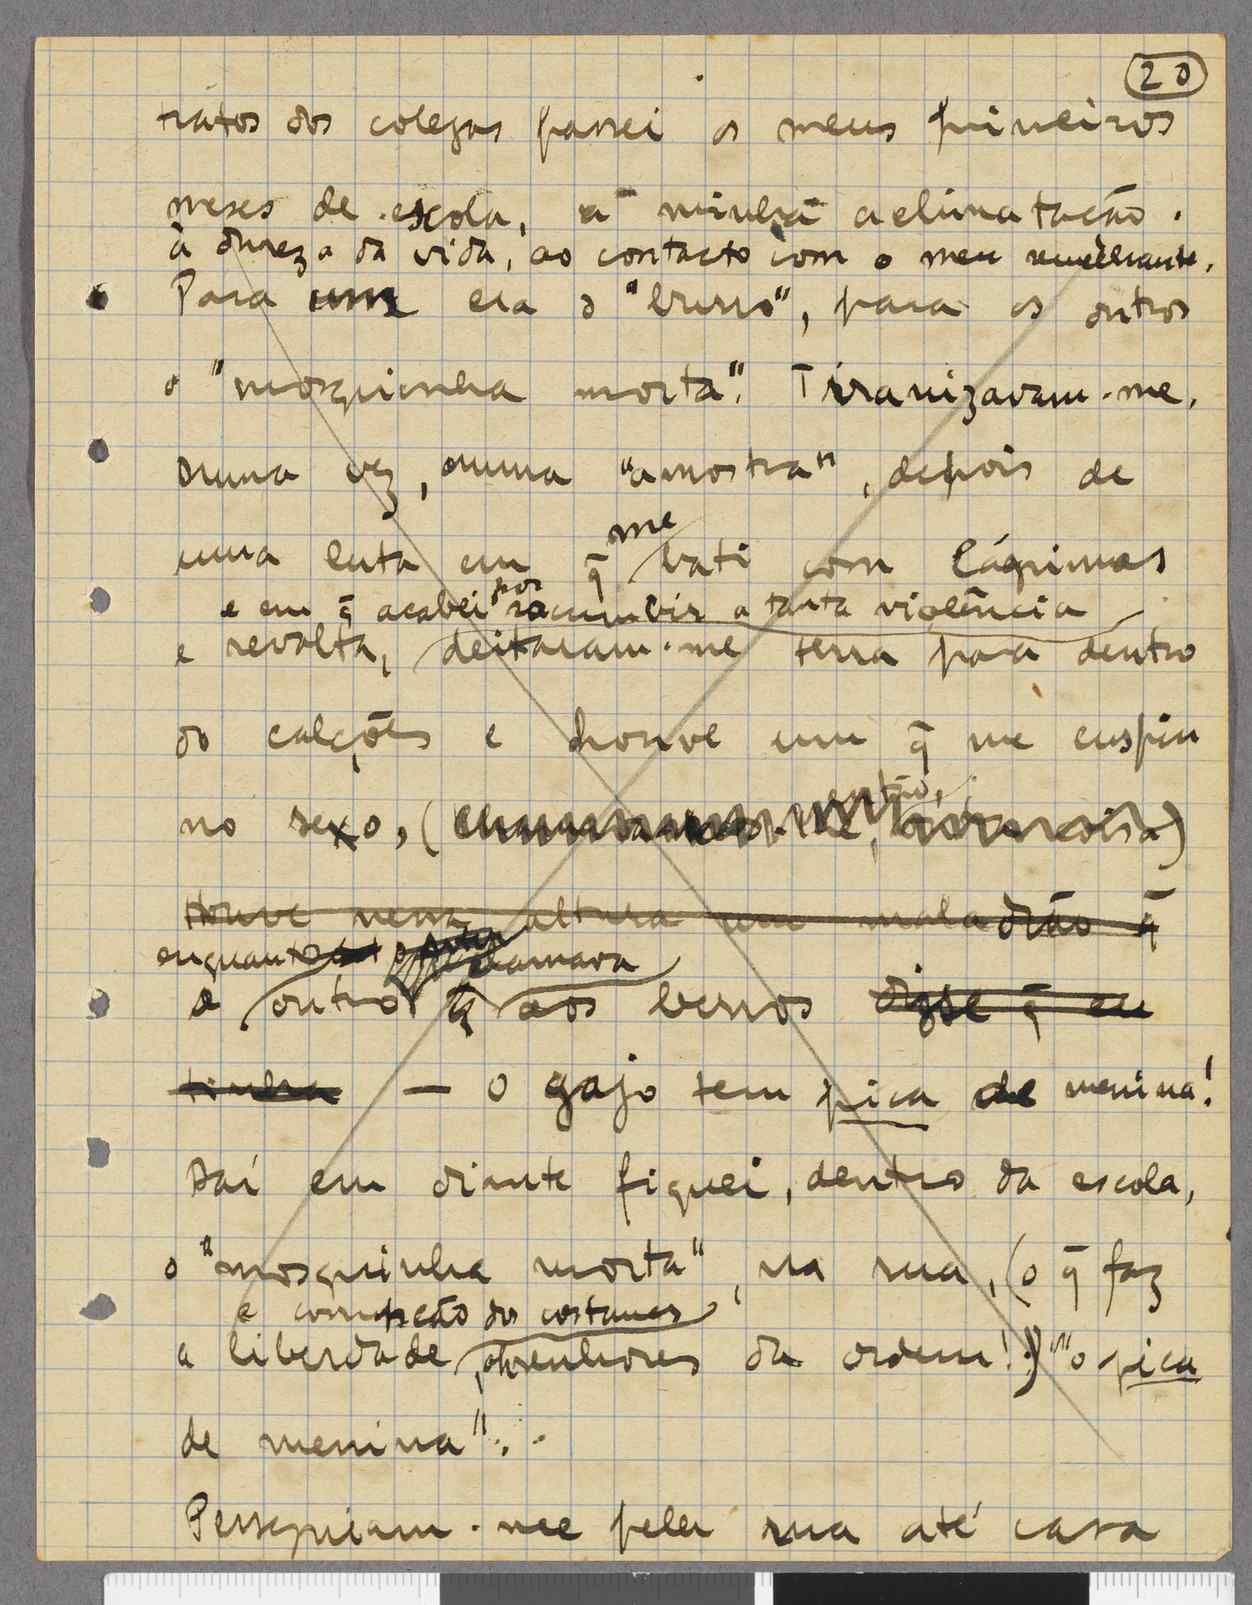 20
tratos dos colegas passei os meus primeiros
meses de escola, a minha aclimatação
à dureza da vida, ao contacto com o meu semelhante.
Para uns era o "burro", para os outros
o "mosquinha morta". Tiranizavam-me.
Duma vez, numa "amostra", depois de
me
uma luta em q̄ bati com lágrimas
e em q̄ acabei por sucumbir a tanta violência
e revolta, deitaram-me terra para dentro
dos calções e houve um q̄ me cuspiu
no sexo, (
então,
Houve nessa altura um maladrão q̄
enquanto chamava
o outro q̄ aos berros disse q̄ eu
tinha — O gajo tem pica de menina!
Daí em diante fiquei, dentro da escola,
o "mosquinha morta", na rua, (o q̄ faz
e correcção dos costumes
a liberdade, senhores da ordem!) "o pica
de menina".
Perseguiam-me pela rua até casa